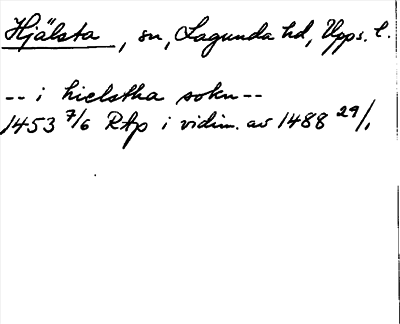 Hjälsta, sn, Lagunda hd, Upps. l.
-- i hielstha sokn --
1453 7/6 RAp i vidim. av 1488 29/1.